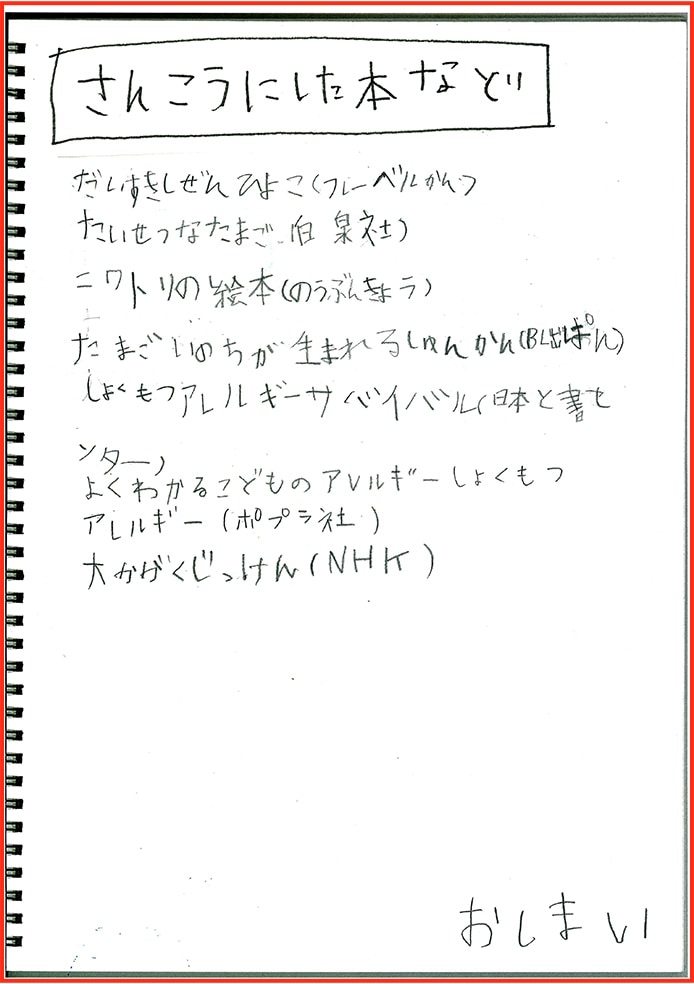 さんこうにした本など
だいすきしぜんひよこ(フレーベルかん)
たいせつなたまご(白泉社)
ニワトリの絵本(のうぶんきょう)
たまごいのちが生まれるしゅんかん(BL出ぱん)
しょくもつアレルギーサバイバル(日本と書セ
ンター)
よくわかるこどものアレルギーしょくもつ
アレルギー(ポプラ社)
大かがくじっけん(NHK)
おしまい